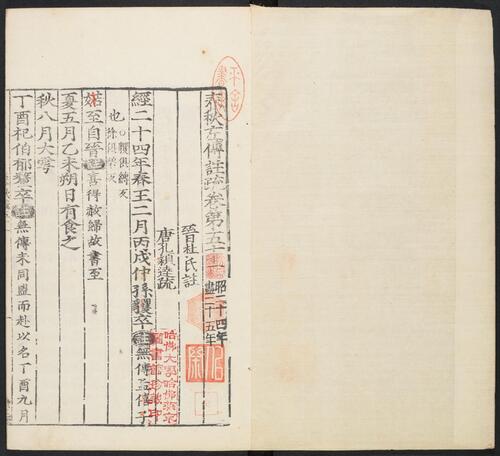 春秋左傳註疏卷第五十一
昭二十四年
盡二十五年
晉杜氏註
唐孔穎達疏
經二十四年春王二月丙戌仲孫貜卒註無傳孟僖子
也○貜俱縛反
婼至自晉註喜得赦歸故書至
夏五月乙未朔日有食之
秋八月大雩
丁酉杞伯郁釐卒註無傳未同盟而赴以名丁酉九月
哈佛大學哈佛燕京
圖書館珍藏印